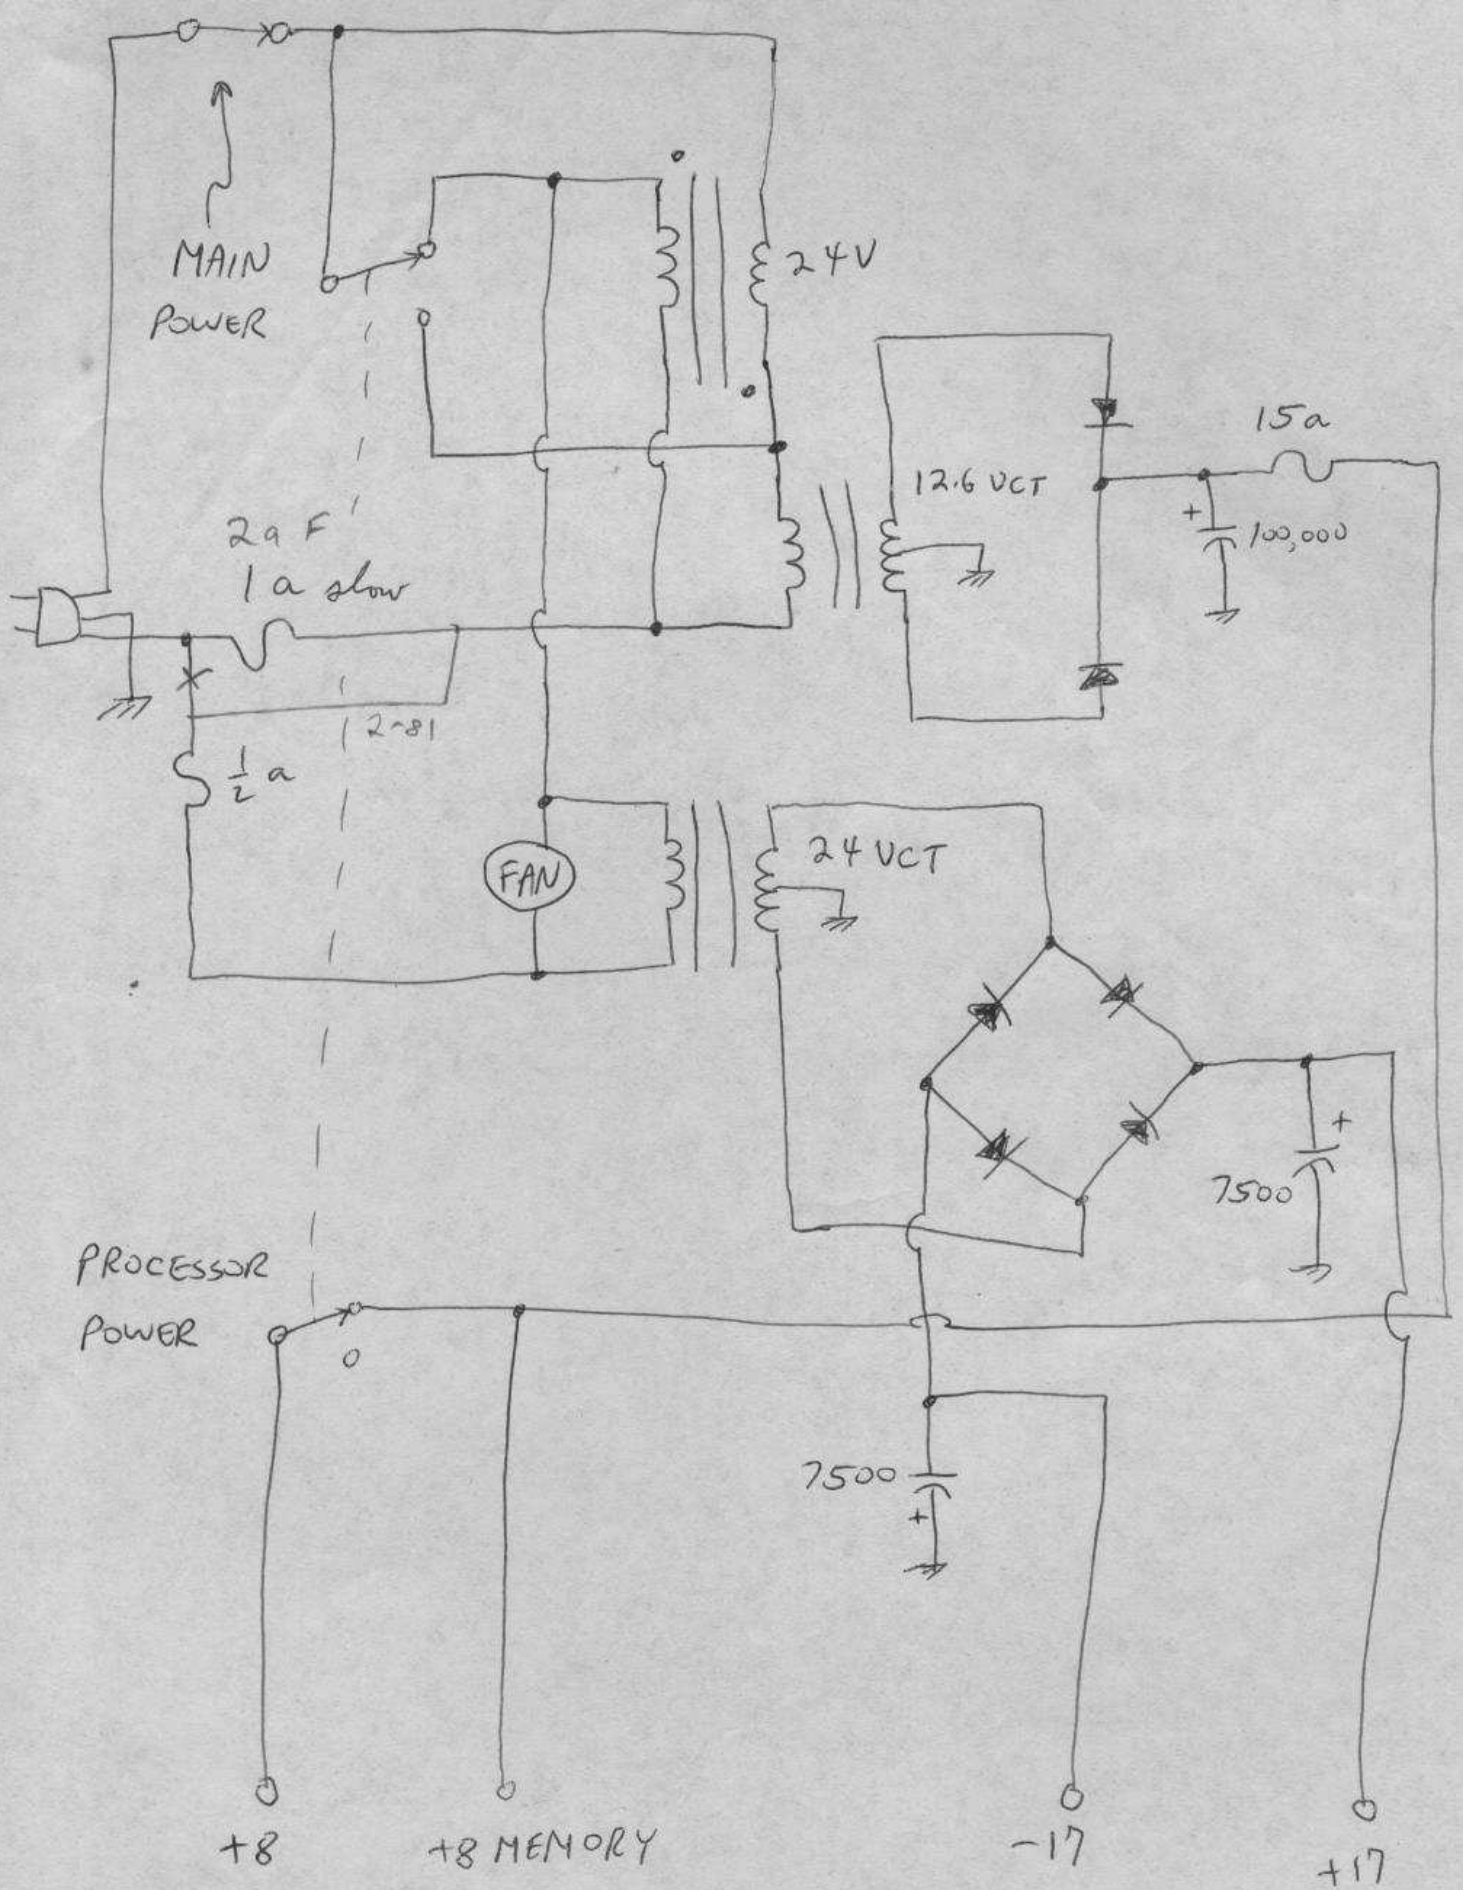 MAIN
POWER
24V
15a
12.6 VCT
+
100,000
2a F
1 a slow
2-81
1/2 a
FAN
24 VCT
+
7500
PROCESSOR
POWER
7500
+
+8
+8 MEMORY
-17
+17